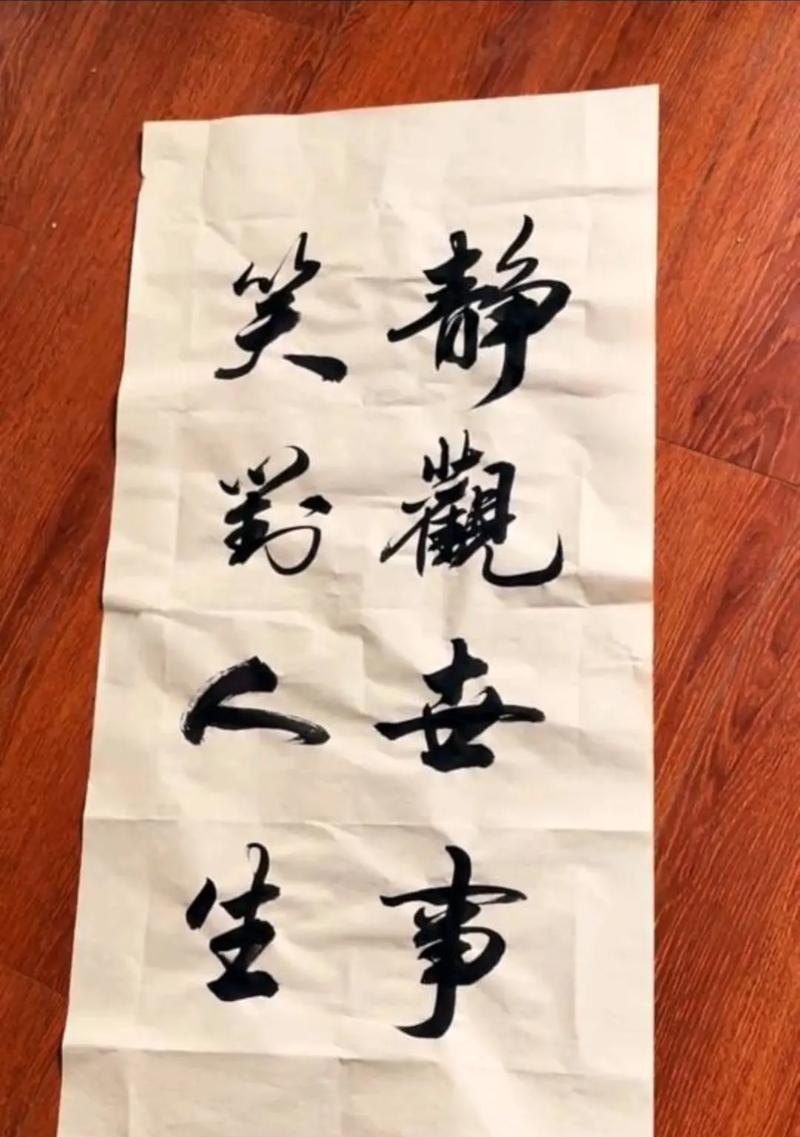 静觀世事
笑對人生